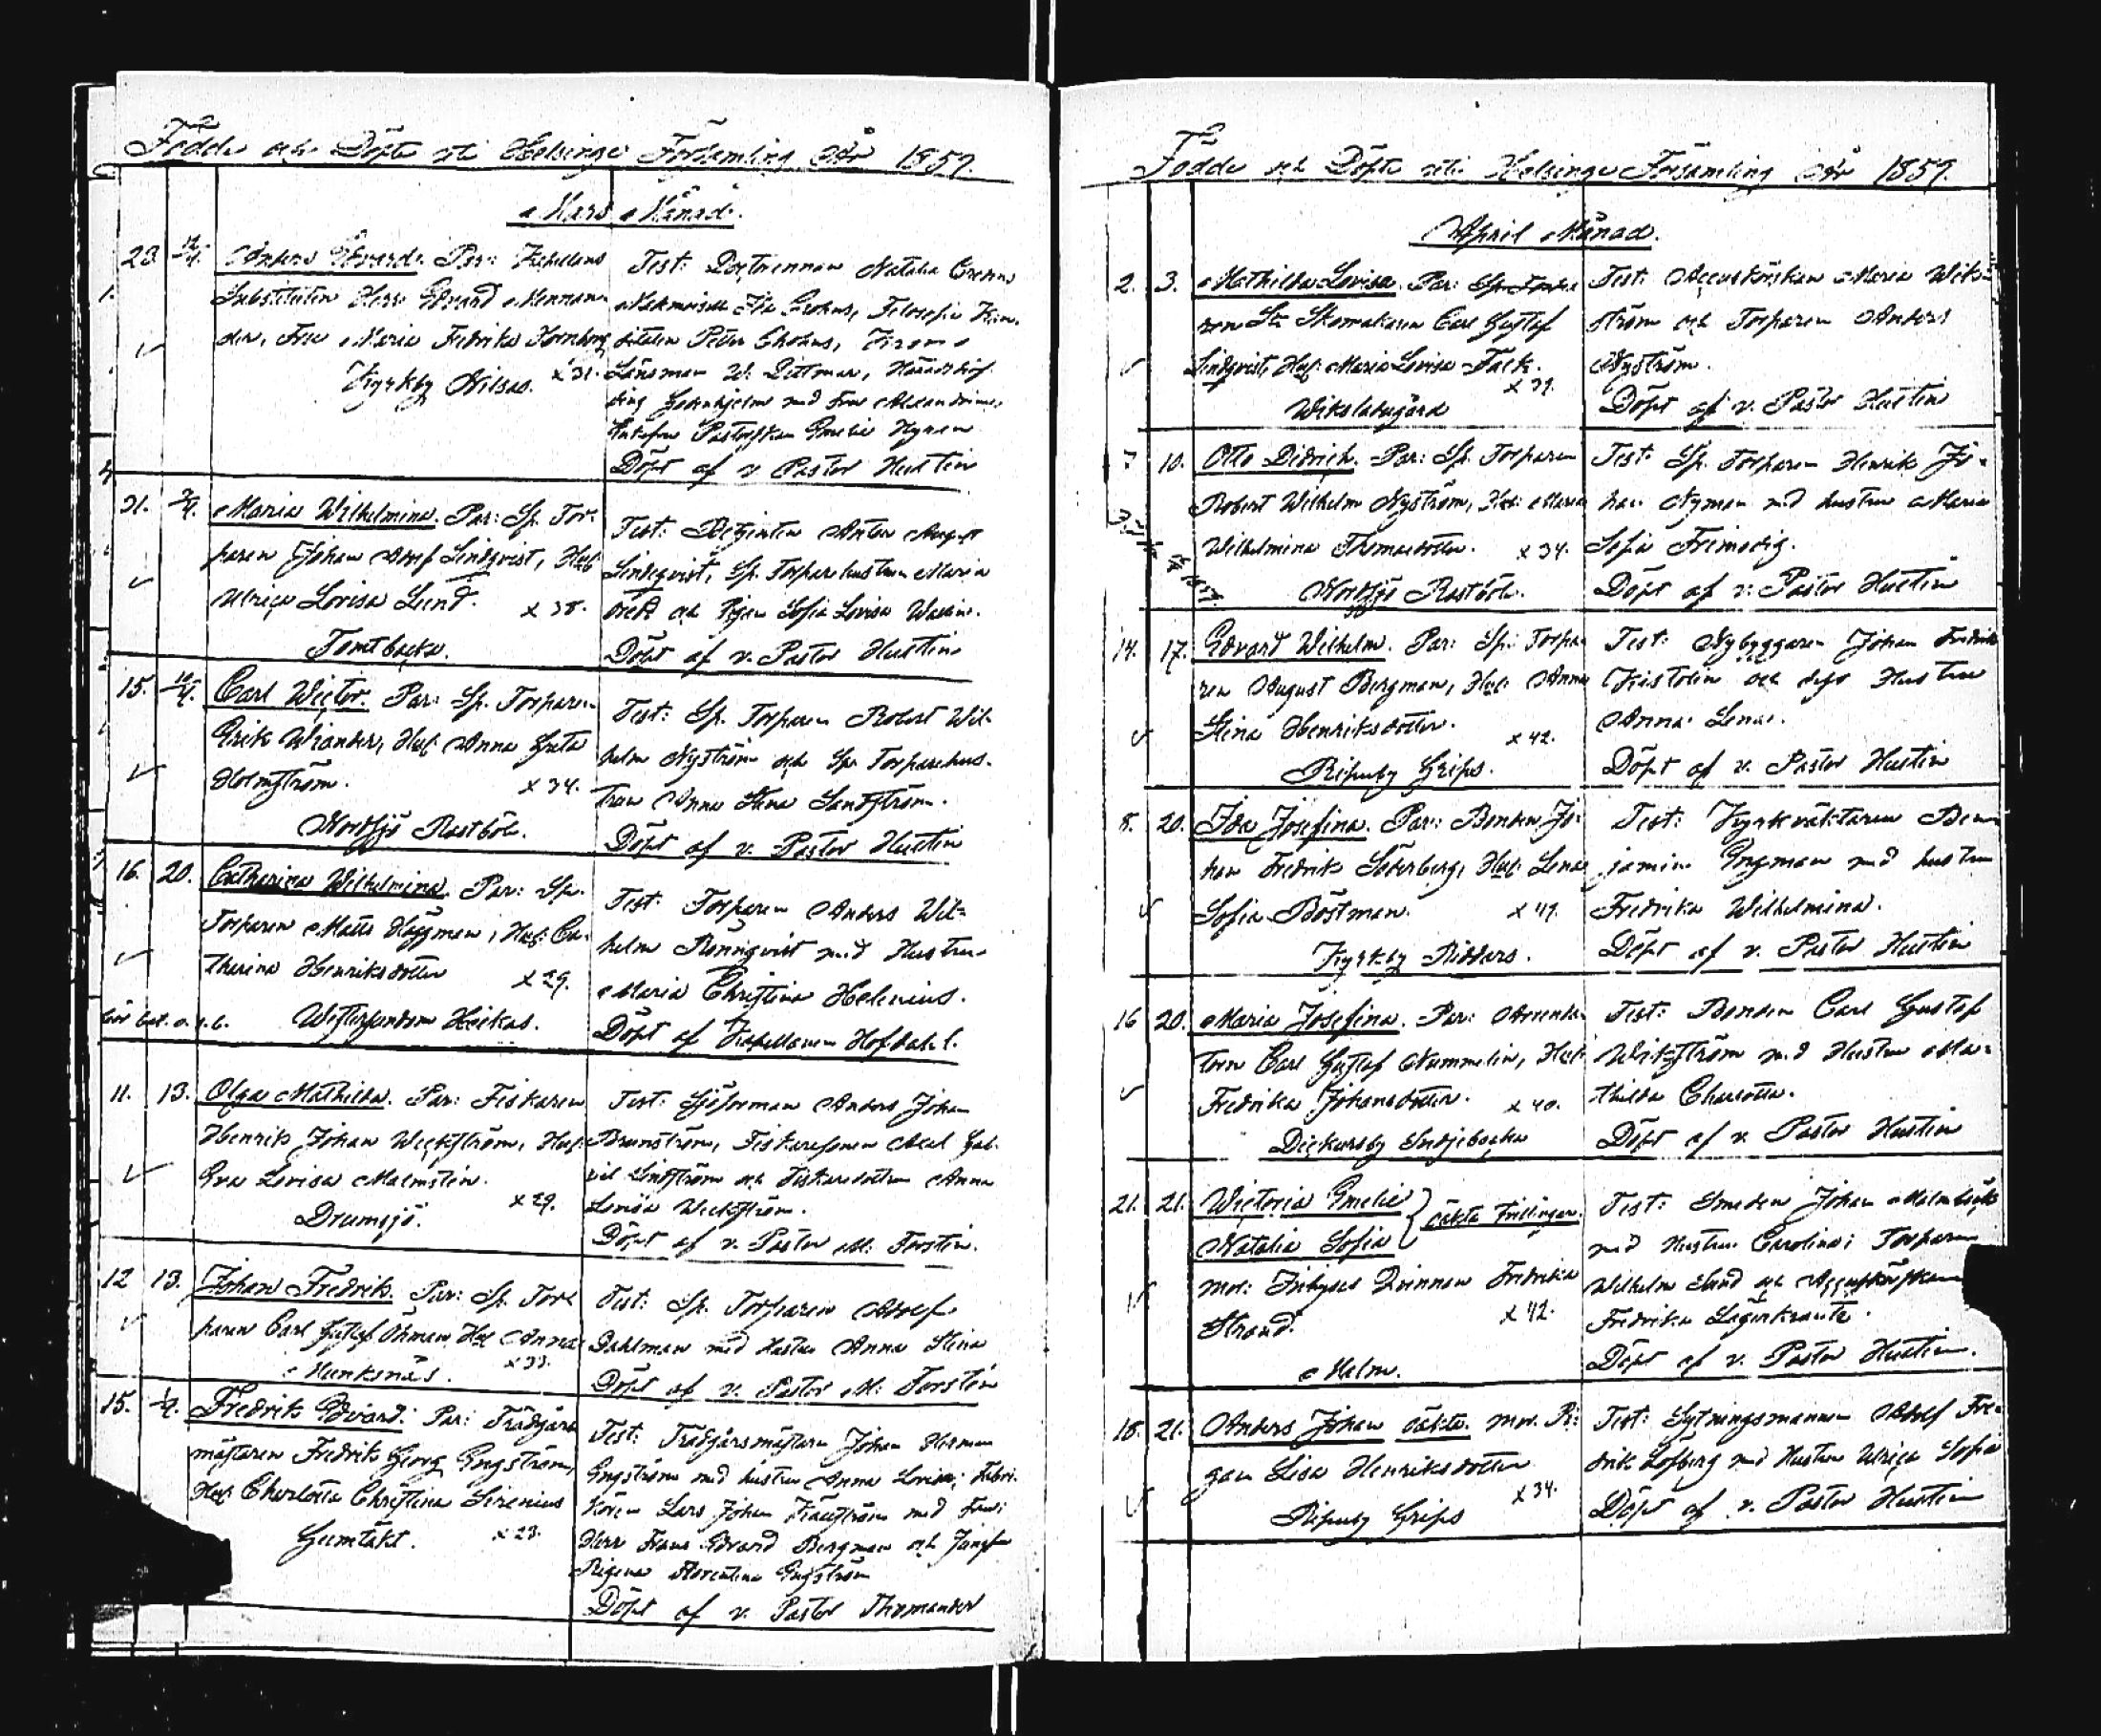 Födde och Döpte uti Helsinge Församling År 1859.
Mars Månad.
28. 12/4. Anders Edvard. Par: Kapellans
Substituten Herr Edvard Mennan-
der, Fru Maria Fredrika Hornborg
Kyrkby Nissas. x 31.
Test: Natalia
Ida Filosofie Kan-
didaten Petter Krono
Länsman W. Dittmar, Häradshöf-
ding med Fru Alexandrine,
Pastorskan Emelie
Döpt af v. Pastor Hustin
31. 3/4. Maria Wilhelmina. Par: Sp. Tor-
paren Johan Adolf Lindqvist, Hust:
Ulrica Lovisa Lund. x 38.
Tomtbacka.
Test: Betjenten Anton August
Lindqvist, Sp. Torparehustrun Maria
och Pigan Sofia Lovisa
Döpt af v. Pastor Hustin
15. 10/4. Carl Wictor. Par: Sp. Torparen
Erik Wiander, Hust: Anna Greta
Holmström. x 34.
Nordsjö Rastböle.
Test: Sp. Torparen Robert Wil-
helm Nyström och Sp. Torparehus-
trun Anna Stina Sandström.
Döpt af v. Pastor Hustin
16. 20. Catharina Wilhelmina. Par: Sp.
Torparen Matts Häggman, Hust: Ca-
tharina Henriksdotter x 29.
Westersundom Heikas.
Test: Torparen Anders Wil-
helm Rönnqvist med Hustru
Maria Christina Helenius.
Döpt af Kapellanen Hofdahl.
11. 13. Olga Mathilda. Par: Fiskaren
Henrik Johan Weckström, Hust:
Eva Lovisa Malmsten. x 29.
Drumsjö.
Test: Sjöforman Anders Johan
Brunström, Fiskaresonen Axel Gab-
riel Lindström och Fiskaredottren Anna
Lovisa Weckström.
Döpt af v. Pastor M: Forstén.
12 13. Johan Fredrik. Par: Sp. Tor-
paren Carl Gustaf Öhman, Hust: Anna
Munksnäs. x 33.
Test: Sp. Torparen Adolf
Dahlman med Hustru Anna Stina
Döpt af v. Pastor M: Forstén
15. Fredrik Edvard. Par: Trädgårds
mästaren Fredrik Georg Engström,
Hust: Charlotta Christina Sirenius
Gumtäkt. x 23.
Test: Trädgårsmästaren Johan Herman
Engström med hustru Anna Lovisa; Fabri-
kören Lars Johan med Fru;
Herr Frans Edvard Bergman och Jungfru
Regina Florentina Engström
Döpt af v. Pastor Thomander
Födde och Döpte uti Helsinge Församling År 1859.
April Månad.
2. 3. Mathilda Lovisa. Par:
Skomakaren Carl Gustaf
Lindqvist, Hust: Maria Lovisa Falk.
x 39.
Wikslakugård
Test: Accuskörskan Maria Wik-
ström och Torparen Anders
Nyström.
Döpt af v. Pastor Hustin
7 10. Otto Didrich. Par: Sp. Torparen
Robert Wilhelm Nyström, Hust: Maria
Wilhelmina Thomasdotter. x 34.
Nordsjö Rastböle.
Test: Sp. Torparen Henrik Jo-
han Nyman med hustru Maria
Sofia Frimodig.
Döpt af v. Pastor Hustin
14. 17. Edvard Wilhelm. Par: Sp: Torpa-
ren August Bergman, Hust: Anna
Stina Henriksdotter. x 42.
Ripuby Grips.
Test: Nybyggaren Johan Fredrik
Kristolin och dess Hustru
Anna Lena.
Döpt af v. Pastor Hustin
8. 20. Ida Josefina. Par: Bonden Jo-
han Fredrik Söderberg, Hust: Lena
Sofia Böstman. x 49.
Kyrkby Ridders.
Test: Kyrkväktaren Ben-
jamin Engman med hustru
Fredrika Wilhelmina.
Döpt af v. Pastor Hustin
16 20. Maria Josefina. Par: Arrenda-
torn Carl Gustaf Nummelin, Hust:
Fredrika Johansdotter. x 40.
Dickursby Smedjebacka
Test: Bonden Carl Gustaf
Wikström med Hustru Ma-
thilda Charlotta.
Döpt af v. Pastor Hustin
21. 21. Wictoria Emelie
Natalia Sofia } oäkta Tvillingar.
mod: Inhyses Qvinnan Fredrika
Strand. x 42.
Malm.
Test: Smeden Johan
med Hustru Carolina; Torparen
Wilhelm Lund och Accuskörskan
Fredrika Lägerkrantz.
Döpt af v. Pastor Hustin.
18. 21. Anders Johan oäkta. mod. Pi-
gan Lisa Henriksdotter
x 34.
Ripuby Grips
Test: Sytningsmannen Adolf Fre-
drik Lofberg med Hustru Ulrica Sofia
Döpt af v. Pastor Hustin